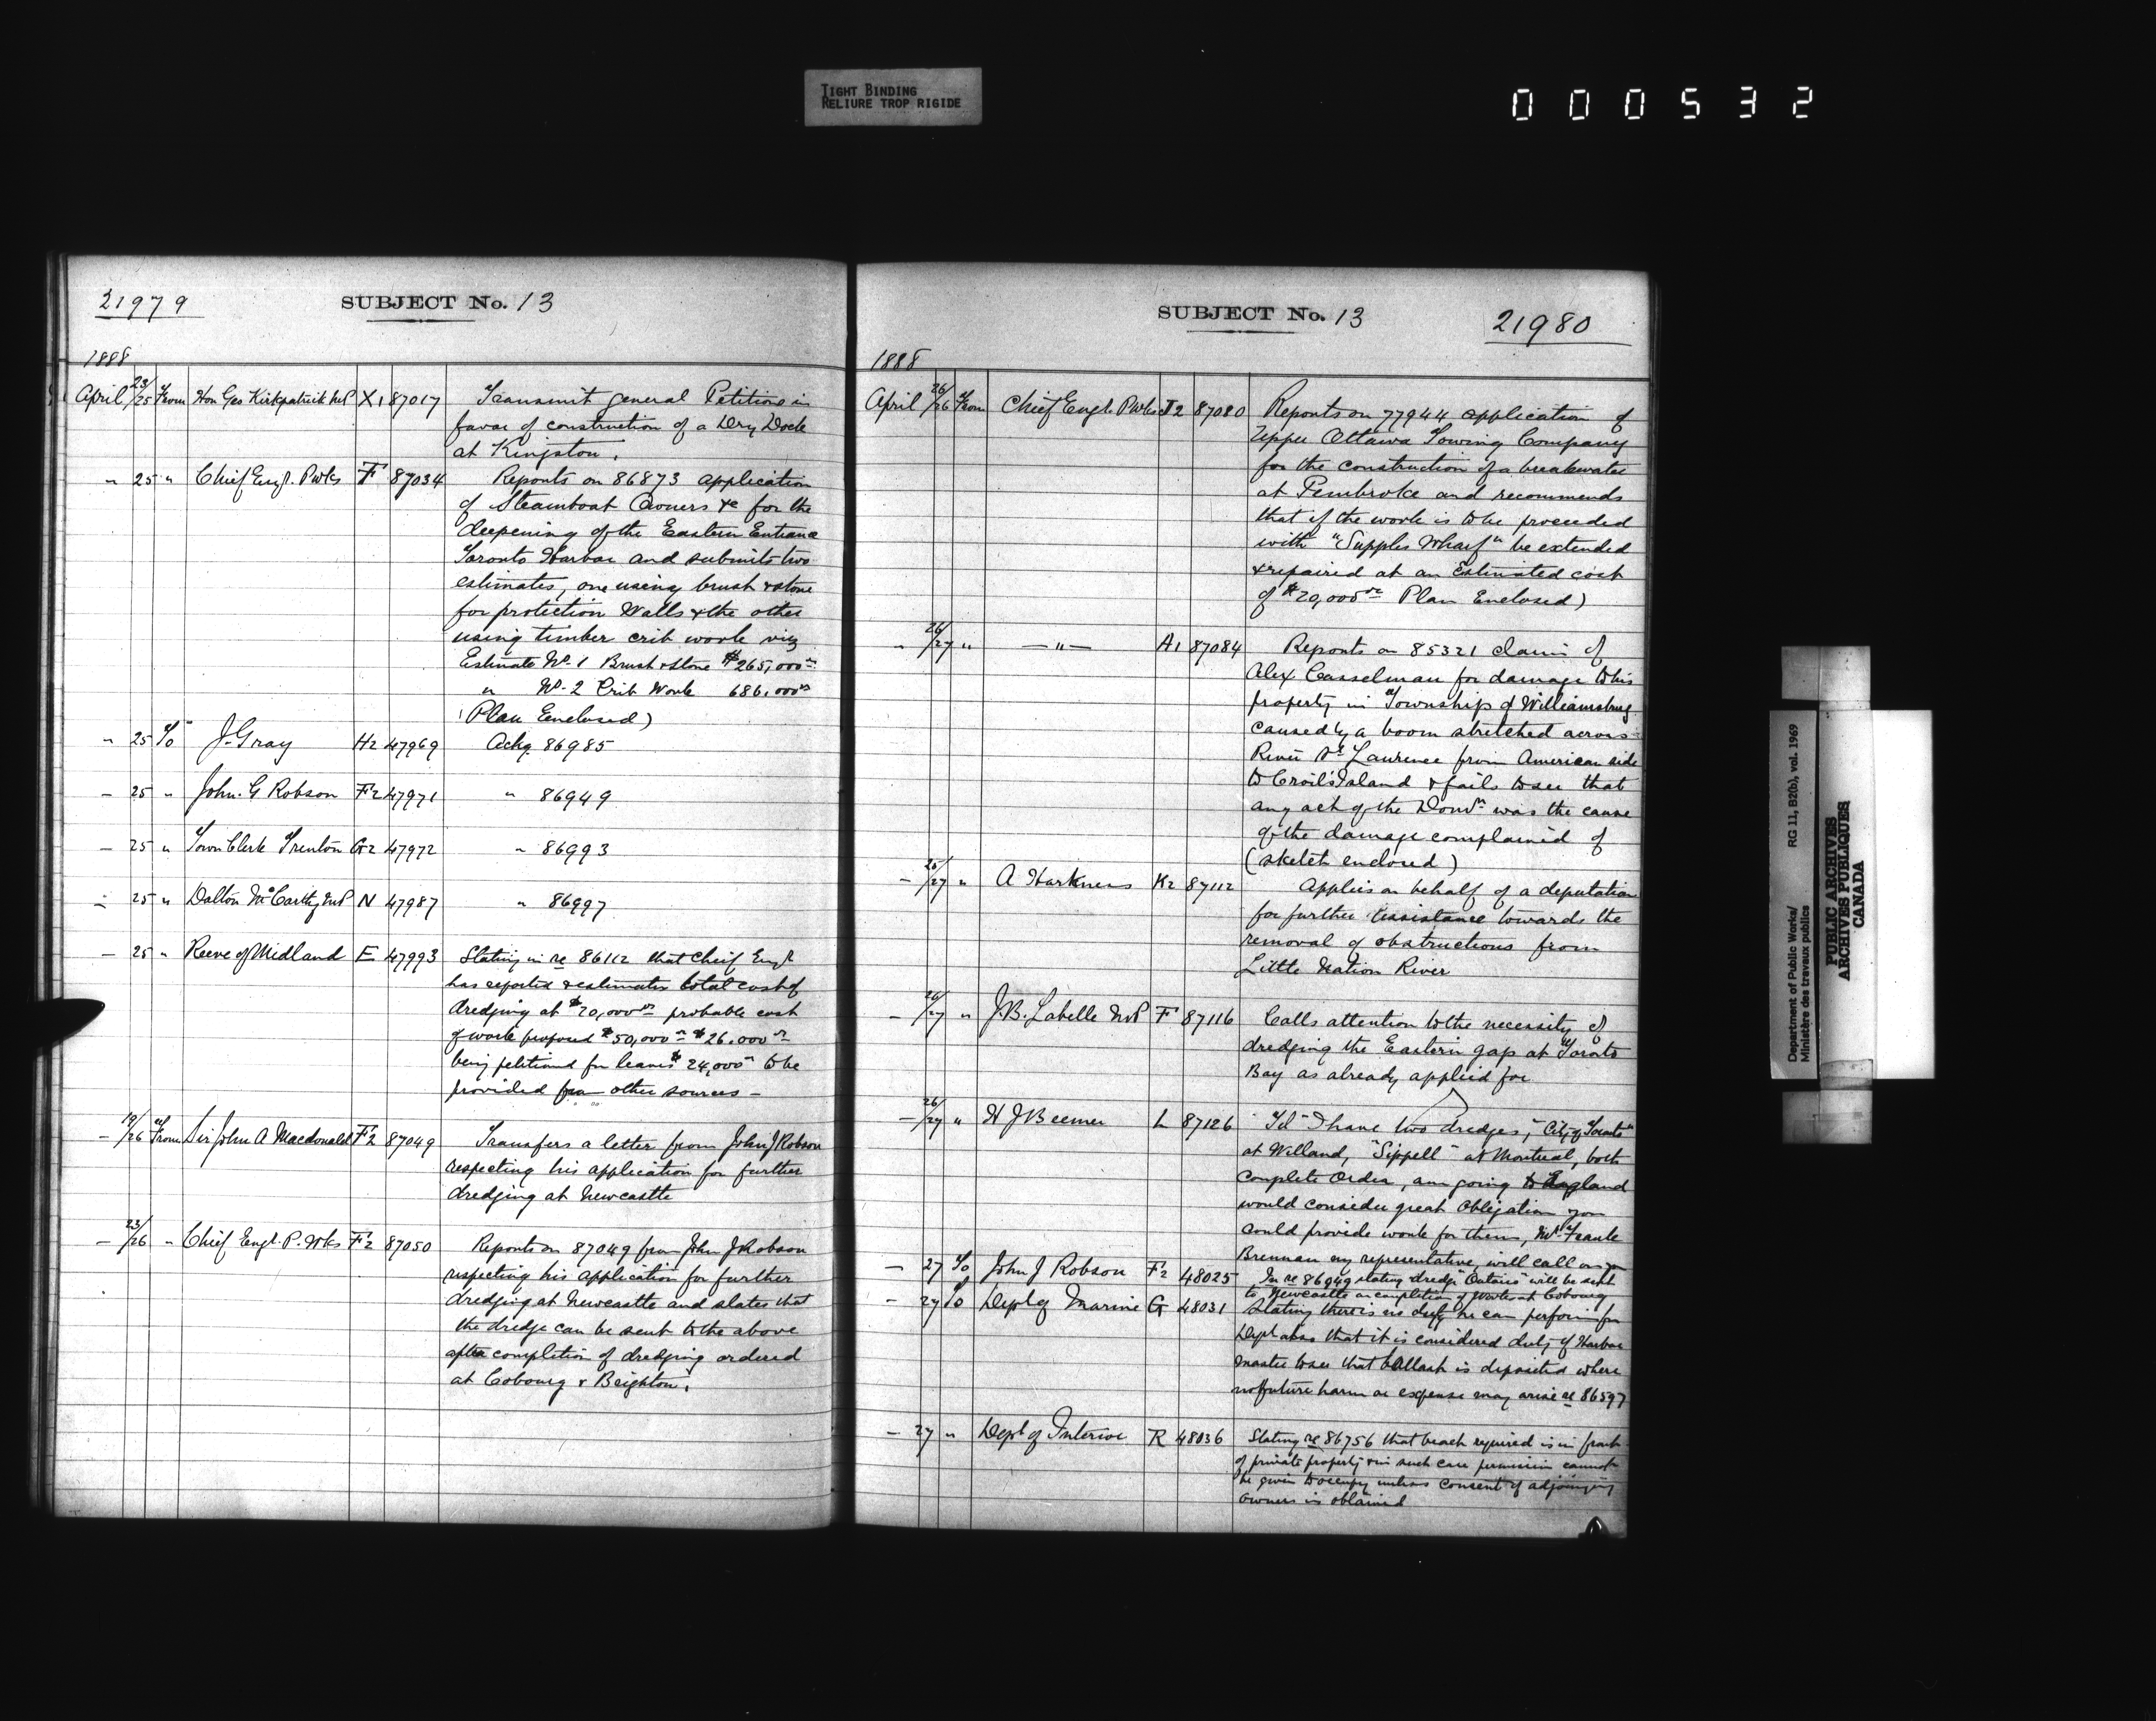 TIGHT BINDING
RELIURE TROP RIGIDE
000532
21979
SUBJECT No. 13
1888
April 23/25 From Hon Geo Kirkpatrick MP X1 87017 Transmit general Petitions in
favor of construction of a Dry Dock
at Kingston.
" 25 " Chief Engr. P Wks F 87034 Reports on 86873 application
of Steamboat Owners &c for the
deepening of the Eastern Entrance
Toronto Harbor and submits two
estimates, one using brush & stone
for protection Walls & the other
using timber crib work viz
Estimate No. 1 Brush & stone $265,000 00
" No. 2 Crib Work 686,000 00
(Plan Enclosed)
" 25 To J. Gray H2 47969 Ackg. 86985
- 25 " John. G Robson F2 47971 " 86949
- 25 " Town Clerk Trenton G2 47972 " 86993
- 25 " Dalton McCarthy MP N 47987 " 86997
- 25 " Reeve of Midland E 47993 Stating in re 86112 that Chief Engr
has reported & estimates total cost of
dredging at $70,000 00 probable cost
of work proposed $50,000 00 $26,000 00
being petitioned for leaves $24,000 00 to be
provided from other sources -
- 19/26 From Sir John A Macdonald F2 87049 Transfers a letter from John J Robson
respecting his application for further
dredging at Newcastle
- 23/26 " Chief Engr. P. Wks F2 87050 Reports on 87049 from John J Robson
respecting his application for further
dredging at Newcastle and states that
the dredge can be sent to the above
after completion of dredging ordered
at Cobourg & Brighton.
SUBJECT No. 13
21980
1888
April 26/26 From Chief Engr. P Wks J2 87080 Reports on 77944 application of
Upper Ottawa Towing Company
for the construction of a breakwater
at Pembroke and recommends
that if the work is to be proceeded
with "Supples Wharf" be extended
& repaired at an Estimated cost
of $20,000 00 Plan Enclosed)
" 26/27 " — " — A1 87084 Reports on 85321 claim of
Alex Casselman for damage to his
property in Township of Williamsburg
caused by a boom stretched across
River St Lawrence from American side
to Croil's Island & fails to see that
any act of the Domn was the cause
of the damage complained of
(sketch enclosed)
- 25/27 " A Harkness K2 87112 Applies on behalf of a deputation
for further assistance towards the
removal of obstructions from
Little Nation River
- 26/27 " J. B. Labelle MP F 87116 Calls attention to the necessity of
dredging the Eastern gap at Toronto
Bay as already applied for
- 26/27 " H J Beemer L 87126 Tel "I have two dredges, "City of Toronto"
at Welland, "Sippell" at Montreal, both
complete Order, am going to England
would consider great Obligation you
could provide work for them, Mr. Frank
Brennan my representative, will call on you
- 27 To John J Robson F2 48025 In re 86949 stating dredge "Ontario" will be sent
to Newcastle on completion of Works at Cobourg
- 27 To Dept of Marine G 48031 Stating there is no duty he can perform for
Dept also that it is considered duty of Harbor
master to see that ballast is deposited where
no future harm or expense may arise re 86597
- 27 " Dept of Interior R 48036 Stating re 86756 that beach required is in front
of private property & in such case permission cannot
be given to occupy unless consent of adjoining
owners is obtained
Department of Public Works/
Ministère des travaux publics
RG 11, B2(b), vol. 1969
PUBLIC ARCHIVES
ARCHIVES PUBLIQUES
CANADA